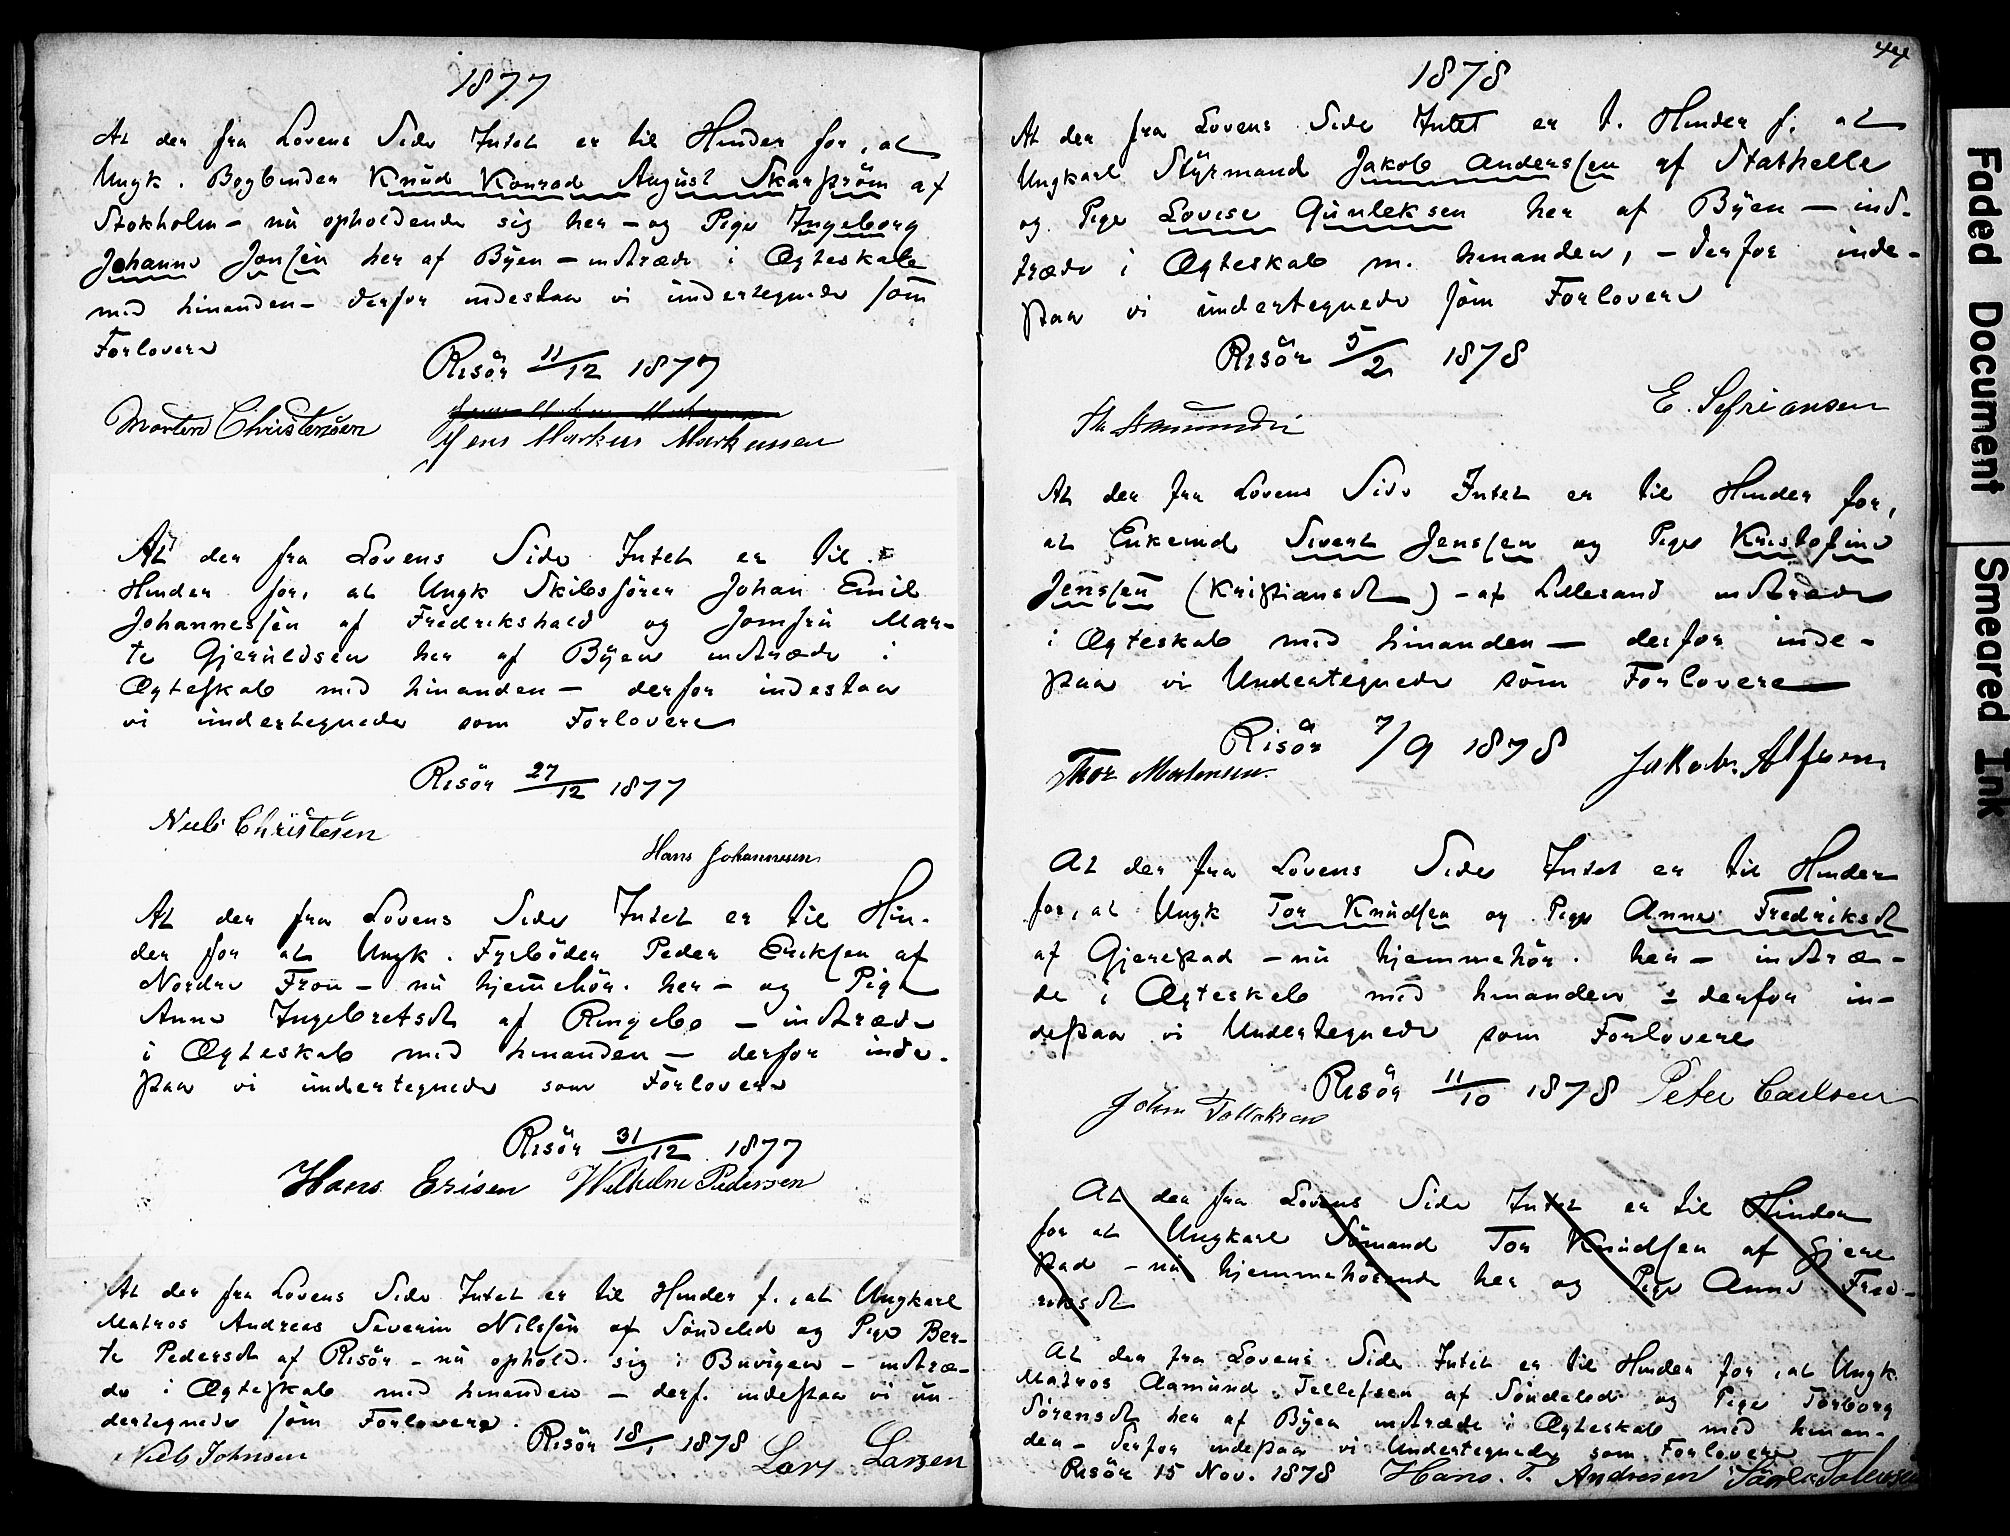 1877
At der fra Lovens Side Intet er til Hinder for, at
Ungk. Bogbinder Knud Konrad August Skarström af
Stokholm – nu opholdende sig her – og Pige Ingeborg
Johanne Jonsen her af Byen – indtræde i Ægteskab
med hinanden – derfor indestaa vi undertegnede som
Forlovere
Risör 11/12 1877
Morten Christensen
Jens Markus Markussen
At der fra Lovens Side Intet er til
Hinder for, at Ungk Skibsförer Johan Emil
Johannessen af Fredrikshald og Jomfru Mar-
te Gjeruldsen her af Byen indtræde i
Ægteskab med hinanden – derfor indestaa
vi undertegnede som Forlovere
Risör 27/12 1877
Niels Christesen
Hans Johannesen
At der fra Lovens Side Intet er til Hin-
der for at Ungk. Fyrböder Peder Eriksen af
Nordre Fron – nu hjemmehör. her – og Pige
Anne Ingebretsdt af Ringebo – indtræde
i Ægteskab med hinanden – derfor inde-
staa vi undertegnede som Forlovere
Risör 31/12 1877
Hans Erisen Wilhelm Pedersen
At der fra Lovens Side Intet er til Hinder f., at Ungkarl
Matros Andreas Severin Nilssen af Söndeled og Pige Ber-
te Pedersdt af Risör – nu ophold. sig i Buvigen – indtræ-
de i Ægteskab med hinanden – derf. indestaa vi un-
dertegnede som Forlovere.
Risör 18/1 1878
Niels Johnsen
Lars Larsen
44
1878
At der fra Lovens Side Intet er t. Hinder f. at
Ungkarl Styrmand Jakob Anderssen af Stathelle
og Pige Lovise Gunleksen her af Byen – ind-
træde i Ægteskab m. hinanden, – derfor inde-
staa vi undertegnede som Forlovere
Risör 5/2 1878
E. Sefriansen
At der fra Lovens Side Intet er til Hinder for,
at Enkemd Sivert Jenssen og Pige Kristofine
Jenssen (Kristiansdt) – af Lillesand indtræde
i Ægteskab med hinanden – derfor inde-
staa vi Undertegnede som Forlovere
Risör 7/9 1878
Thor Mortensen.
Jakob
At der fra Lovens Side Intet er til Hinder
for, at Ungk Tor Knudsen og Pige Anne Fredriksdt
af Gjerestad – nu hjemmehör. her – indtræ-
de i Ægteskab med hinanden – derfor in-
destaa vi Undertegnede som Forlovere
Risör 11/10 1878 Peter Carlsen
John Tallaksen
At der fra Lovens Side Intet er til Hinder
for at Ungkarl Sömand Tor Knudsen af Gjere
stad – nu hjemmehörende her og Pige Anne Fred-
riksdt
At der fra Lovens Side Intet er til Hinder for, at Ungk
Matros Aamund Tellefsen af Söndeled og Pige Torborg
Sörensdt her af Byen indtræde i Ægteskab med hinan-
den – derfor indestaa vi Undertegnede som Forlovere
Risör 15 Nov. 1878 Hans. T. Andresen
Faded Document
Smeared Ink